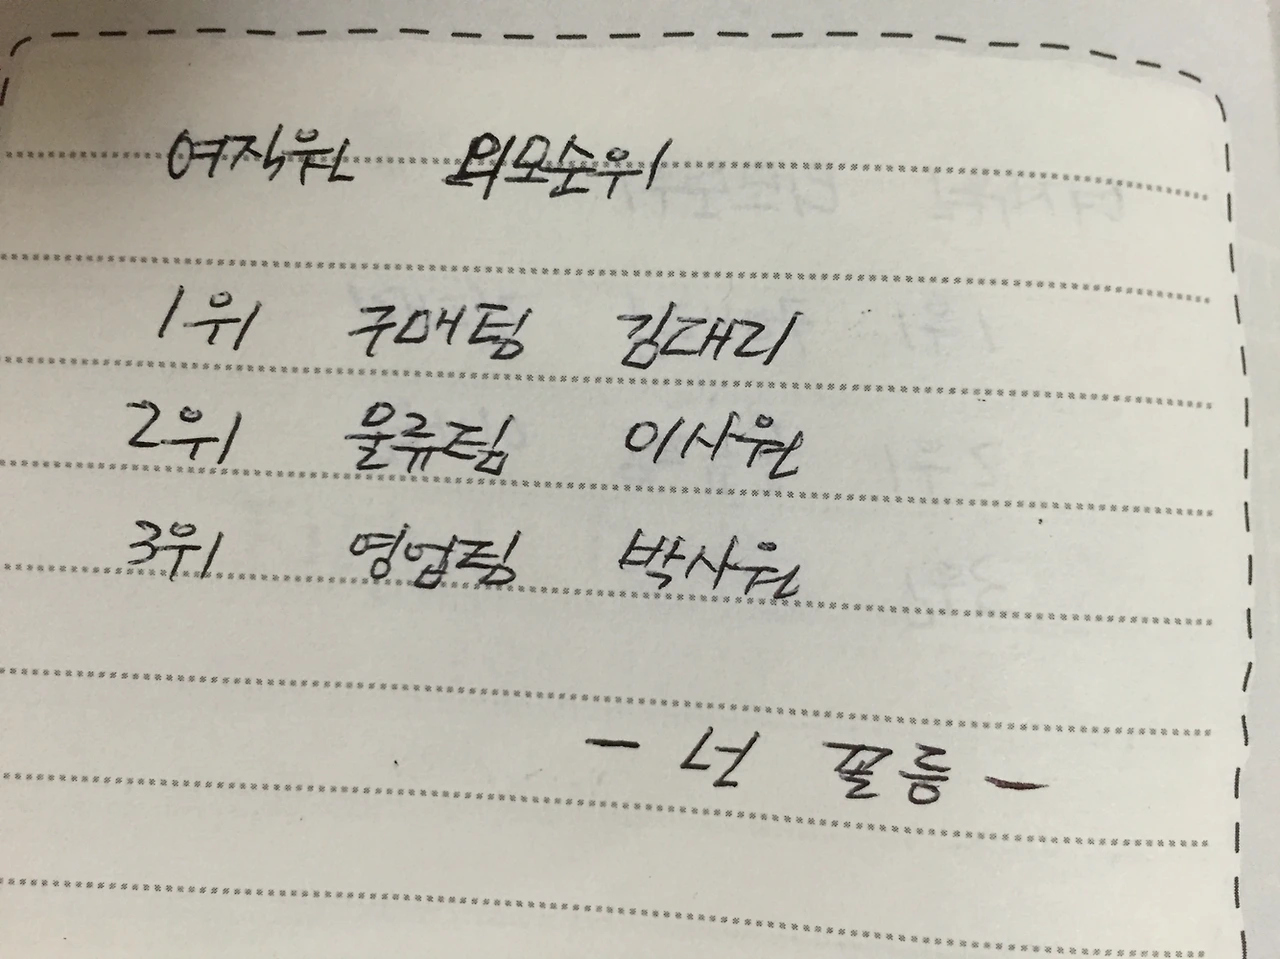 여직원 외모순위
1위 구매팀 김대리
2위 물류팀 이사원
3위 영업팀 박사원
- 너 꼴등 -